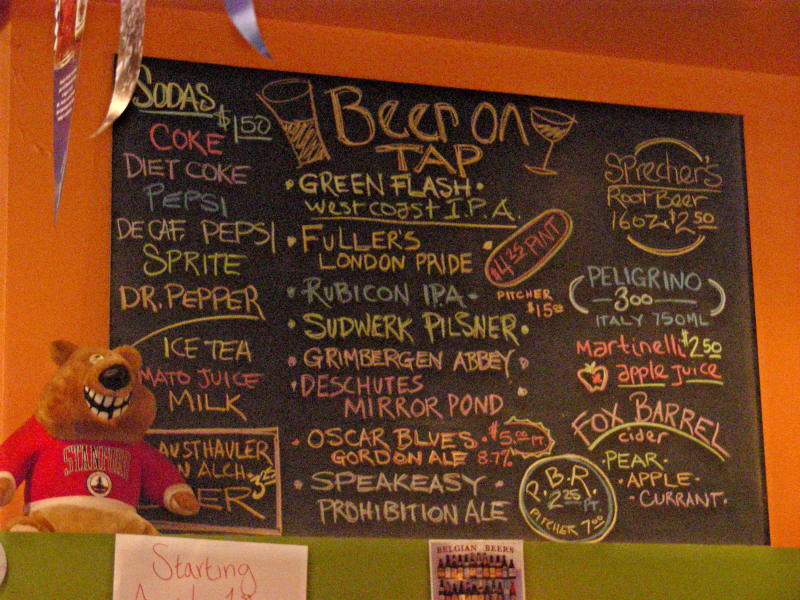 SODAS
$1.50
COKE
DIET COKE
PEPSI
DECAF. PEPSI
SPRITE
DR. PEPPER
ICE TEA
MATO JUICE
MILK
AUSTHAULER
N ALCH.
ER
Beer on
TAP
GREEN FLASH
West coast I.P.A.
FULLER'S
LONDON PRIDE
$4.25 PINT
RUBICON IPA
PITCHER
SUDWERK PILSNER
GRIMBERGEN ABBEY
DESCHUTES
MIRROR POND
OSCAR BLUES $5.00 PT.
GORDON ALE 8.7%
SPEAKEASY
PROHIBITION ALE
P.B.R.
2.25 PT.
PITCHER 7.00
Sprecher's
Root Beer
16oz $2.50
PELIGRINO
3.00
ITALY 750ML
Martinelli $2.50
apple juice
FOX BARREL
cider
PEAR
APPLE
CURRANT
STANFORD
Starting
BELGIAN BEERS